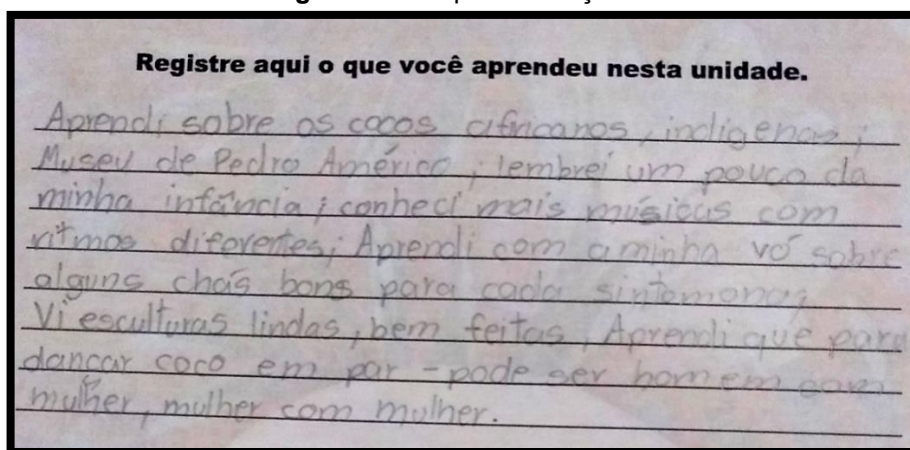 Registre aqui o que você aprendeu nesta unidade.
Aprendi sobre os cocos africanos, indigenas;
Museu de Pedro Américo; lembrei um pouco da
minha infância; conheci mais músicas com
ritmos diferentes; Aprendi com a minha vó sobre
alguns chás bons para cada
Vi esculturas lindas, bem feitas, Aprendi que para
dançar coco em par - pode ser homem com
mulher, mulher com mulher.